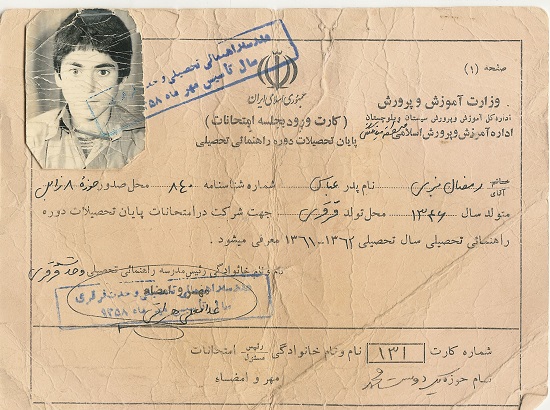 صفحه (۱)
جمهوری اسلامی ایران
وزارت آموزش و پرورش
اداره کل آموزش و پرورش سیستان و بلوچستان
اداره آموزش و پرورش اسلامی
(کارت ورود بجلسه امتحانات)
پایان تحصیلات دوره راهنمائی تحصیلی
مدرسه راهنمائی تحصیلی وحدت
سال تأسیس مهر ماه ۱۳۵۸
آقای رمضان نام پدر عباس شماره شناسنامه ۸۴۰ محل صدور حوزه ۸ زابل
متولد سال ۱۳۴۶ محل تولد قرقری جهت شرکت در امتحانات پایان تحصیلات دوره
راهنمائی تحصیلی سال تحصیلی ۱۳۶۲-۱۳۶۱ معرفی میشود .
نام و نام خانوادگی رئیس مدرسه راهنمائی تحصیلی وحدت قرقری
مهر و امضاء
مدرسه راهنمائی تحصیلی وحدت قرقری
مهر ماه ۱۳۵۸
شماره کارت ۱۳۱ نام و نام خانوادگی رئیس مسئول امتحانات
نام حوزه یک مهر و امضاء